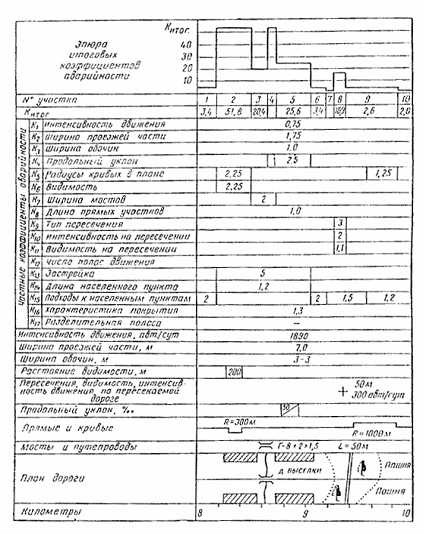 Kитог.
Эпюра
итоговых
коэффициентов
аварийности
40
30
20
10
N° участка 1 2 3 4 5 6 7 8 9 10
Kитог 3,4 51,8 20,4 25,6 3,4 2,6 2,0
Частные коэффициенты аварийности
K1 интенсивность движения 0,75
K2 Ширина проезжей части 1,75
K3 Ширина обочин 1.0
K4 Продольный уклон 2.5
K5 Радиусы кривых в плане 2,25 1,25
K6 Видимость 2,25
K7 Ширина мостов 2
K8 Длина прямых участков 1,0
K9 Тип пересечения 3
K10 интенсивность на пересечении 2
K11 Видимость на пересечении 1,1
K12 Число полос движения
K13 Застройка 5
K14 Длина населенного пункта 1,2
K15 Подходы к населенным пунктам 2 2 1,5 1,2
K16 Характеристика покрытия 1,3
K17 Разделительная полоса –
Интенсивность движения, авт/сут 1890
Ширина проезжей части, м 7,0
Ширина обочин, м 3-3
Расстояние видимости, м 200
Пересечения, видимость, интенсив-
ность движения, на пересекаемой
дороге
50м
300авт/сут
Продольный уклон, ‰ 50
Прямые и кривые R=300м R=1000м
Мосты и путепроводы Г-8+2×1,5 L=50м
План дороги д. Выселки Пашня
Пашня
Километры 8 9 10